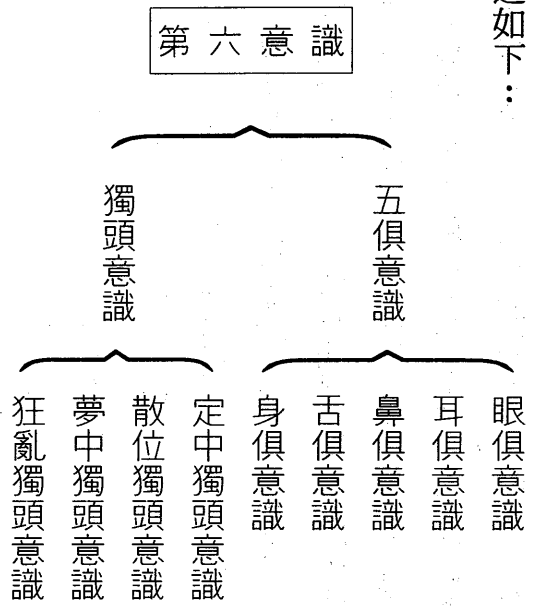 如下：
第六意識
五俱意識
獨頭意識
眼俱意識
耳俱意識
鼻俱意識
舌俱意識
身俱意識
定中獨頭意識
散位獨頭意識
夢中獨頭意識
狂亂獨頭意識